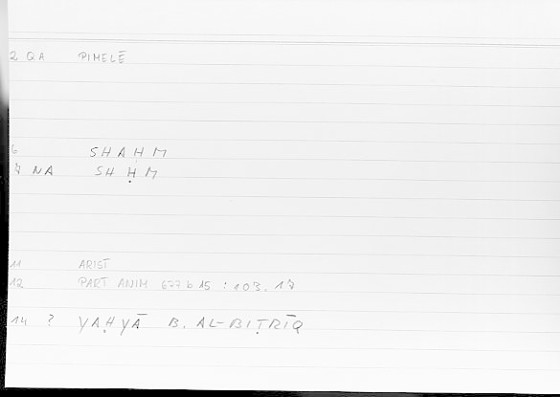 2 QA PIMELĒ
6 SHAḤM
7 NA SHḤM
11 ARIST
12 PART ANIM 677 b 15 : 103.17
14 ? YAḤYĀ B. AL-BIṬRĪQ